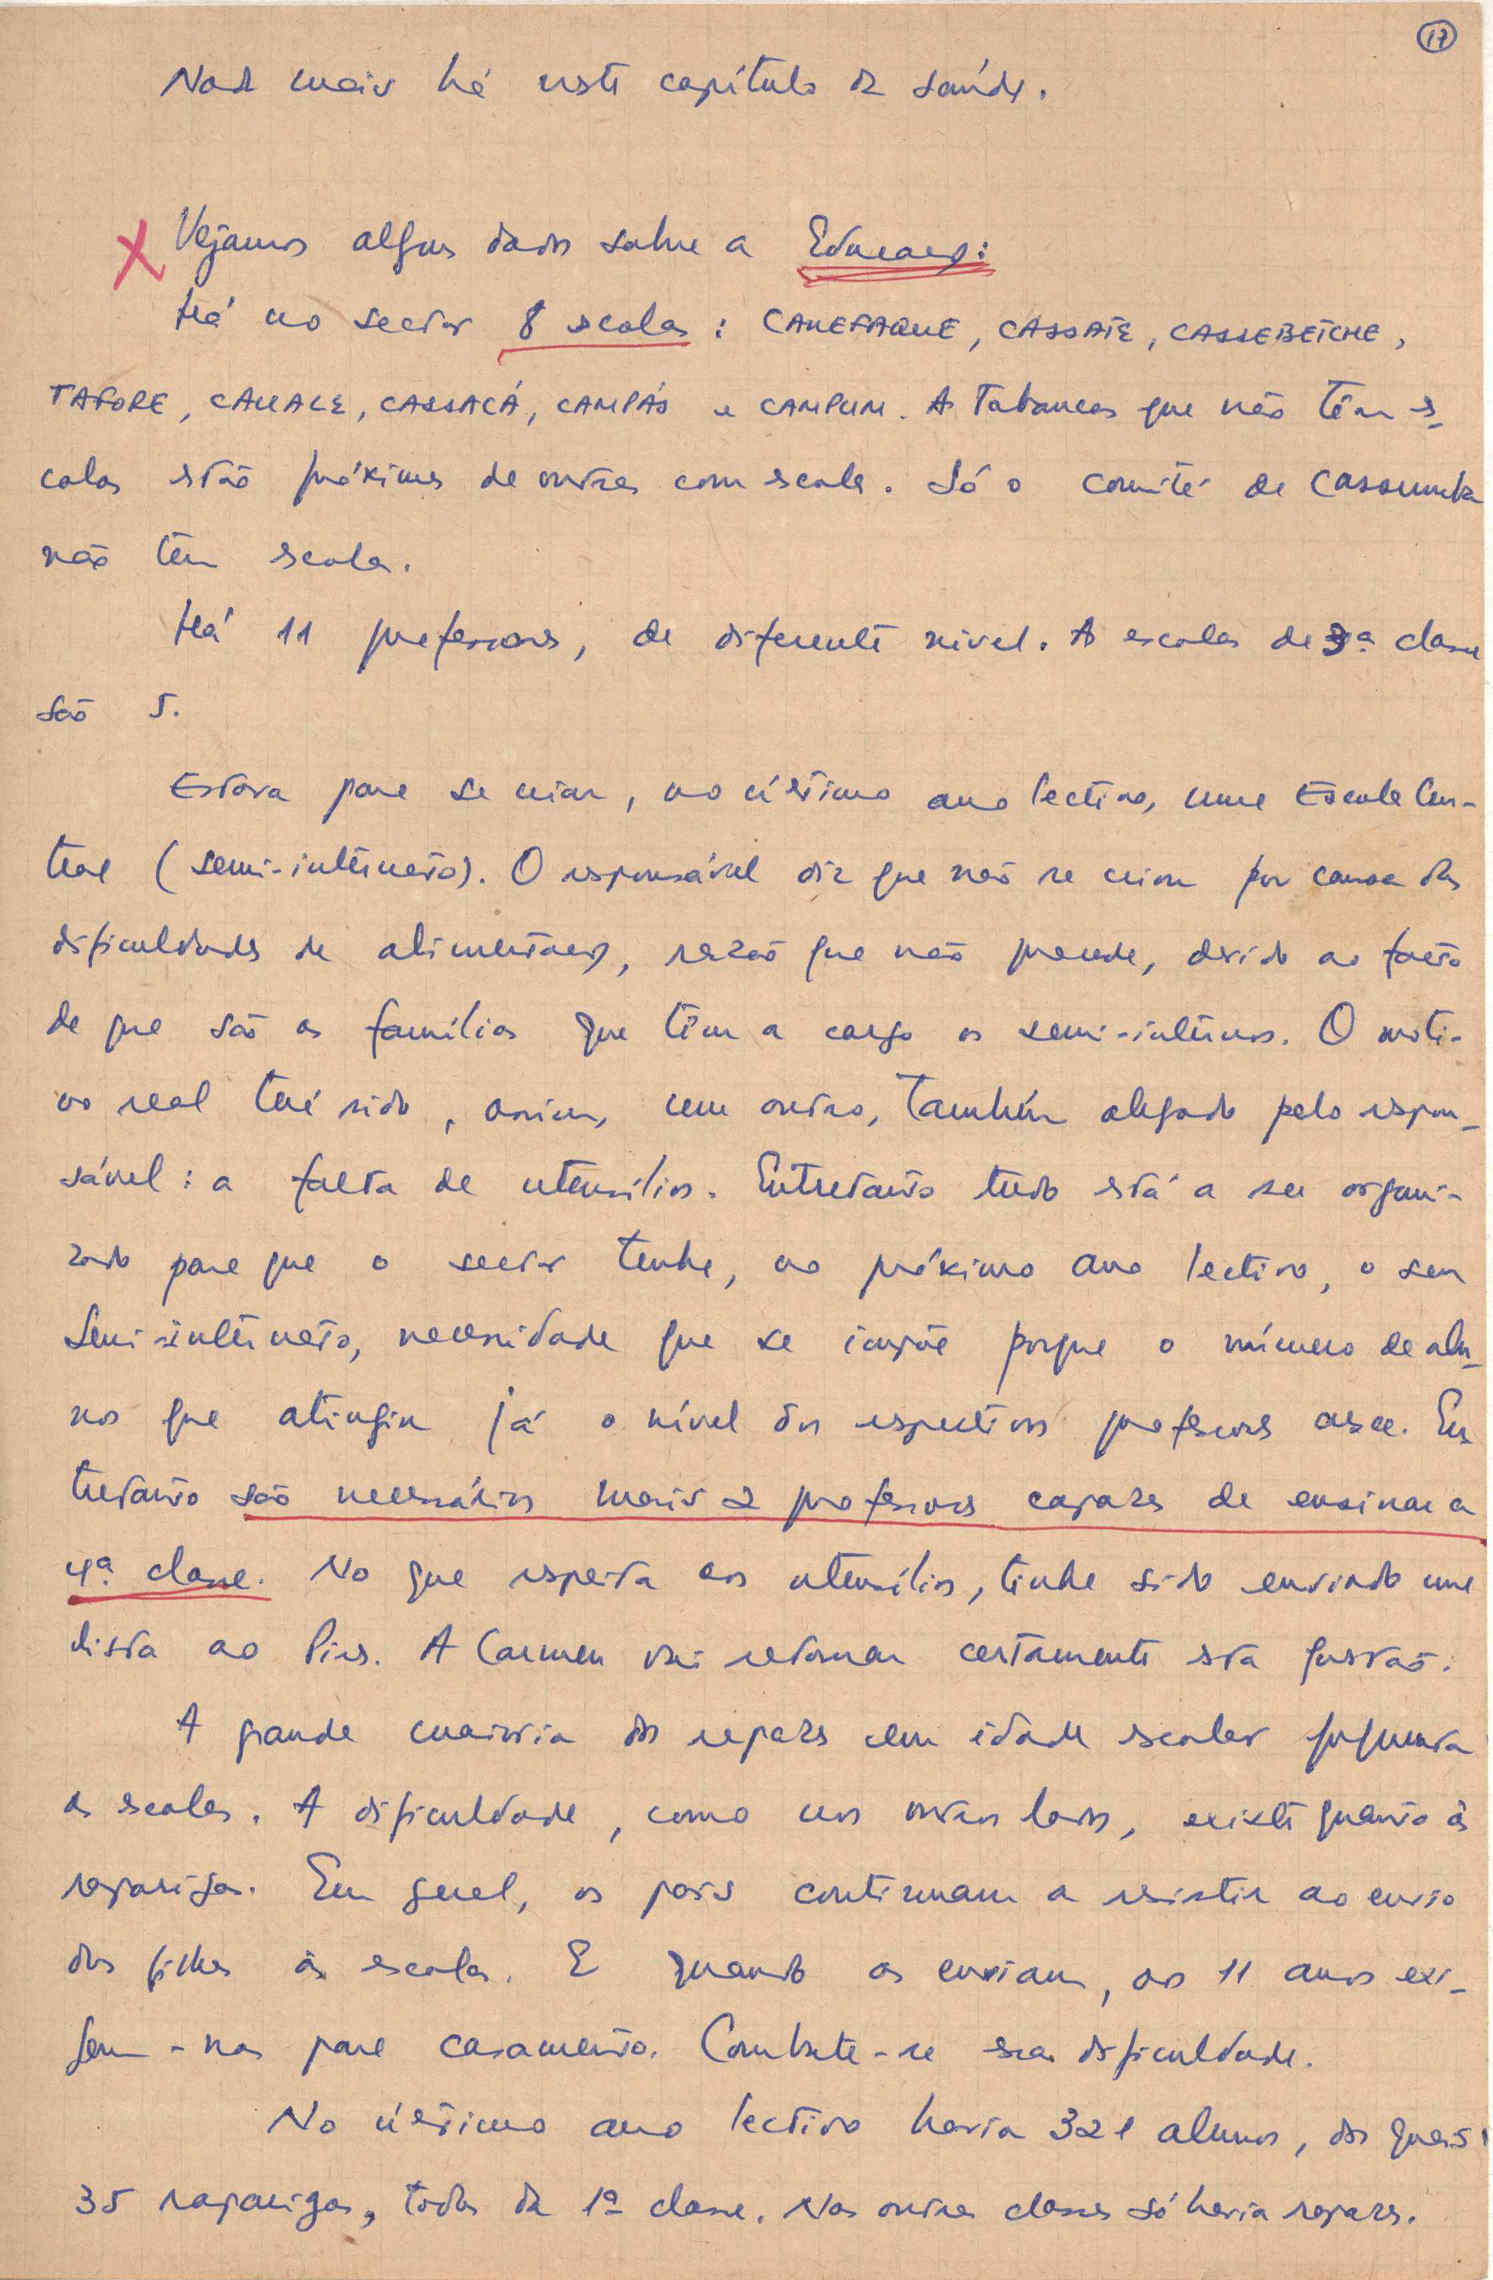 17
Nada mais há neste capítulo da saúde.
X Vejamos alguns dados sobre a Educação:
Há no sector 8 escolas : CANEFAQUE, CASSATE, CASSEBETCHE,
TAFORE, CAUALE, CASSACÁ, CAMPÁS e CAMPUM. As Tabancas que não têm es-
colas estão próximas de outras com escola. Só o comité de Cassumba
não tem escola.
Há 11 professores, de diferente nível. As escolas de 3ª classe
são 5.
Estava para se criar, no último ano lectivo, uma Escola Cen-
tral (semi-internato). O responsável diz que não se criou por causa das
dificuldades de alimentação, razão que não procede, devido ao facto
de que são as famílias que têm a cargo os semi-internos. O moti-
vo real terá sido, assim, um outro, também alegado pelo respon-
sável : a falta de utensílios. Entretanto tudo está a ser organi-
zado para que o sector tenha, no próximo ano lectivo, o seu
Semi-internato, necessidade que se impõe porque o número de alu-
nos que atingiu já o nível dos respectivos professores cresce. En
tretanto são necessários mais 2 professores capazes de ensinar a
4ª classe. No que respeita aos utensílios, tinha sido enviada uma
lista ao Pires. A Carmen vai retomar certamente esta questão.
A grande maioria dos rapazes em idade escolar frequenta
as escolas. A dificuldade, como nos outros lados, existe quanto às
raparigas. Em geral, os pais continuam a resistir ao envio
das filhas às escolas. E quando as enviam, aos 11 anos exi-
gem-nas para casamento. Combate-se essa dificuldade.
No último ano lectivo havia 321 alunos, dos quais
35 raparigas, todas da 1ª classe. Nas outras classes só havia rapazes.